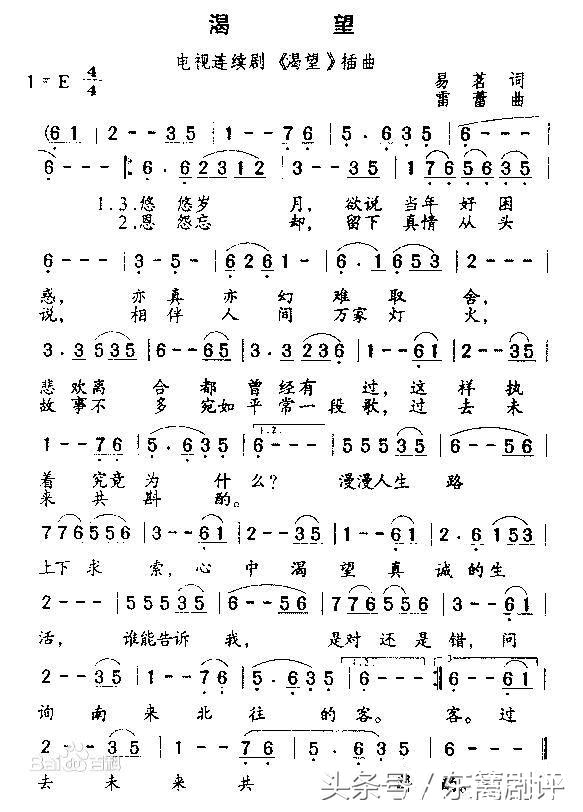 渴 望
电视连续剧《渴望》插曲
1=E 4/4
易茗 词
雷蕾 曲
(61 | 2--35 | 1--76 | 5.635 | 6---|
6--- :| 6.62312 | 3--35 | 1765635 |
1.3.悠悠岁 月，欲说当年好困
2.恩怨忘 却，留下真情从头
6--- | 3-5- | 6261- | 6.1653 |
惑，亦真亦幻难取舍，
说，相伴人间万家灯火，
3.3535 | 6--65 | 3.3236 | 1--61 | 2--35 |
悲欢离合都曾经有过，这样执
故事不多宛如平常一段歌，过去未
1--76 | 5.635 | 1.2. 6--- | 55535 | 6--56 |
着究竟为什么？漫漫人生路
来共斟酌。
776556 | 3--61 | 2--35 | 1.761 | 2.6153 |
上下求索，心中渴望真诚的生
2--- | 55535 | 6--56 | 776556 | 3--61 |
活，谁能告诉我，是对还是错，问
2--35 | 1--76 | 5.635 | 1.2. 6--- :| 3. 6--61 |
询南来北往的客。客。过
2--35 | 1--76 | 5.635 | 6--- | 6---
去未来共
Bai百科
头条号/东篱剧评